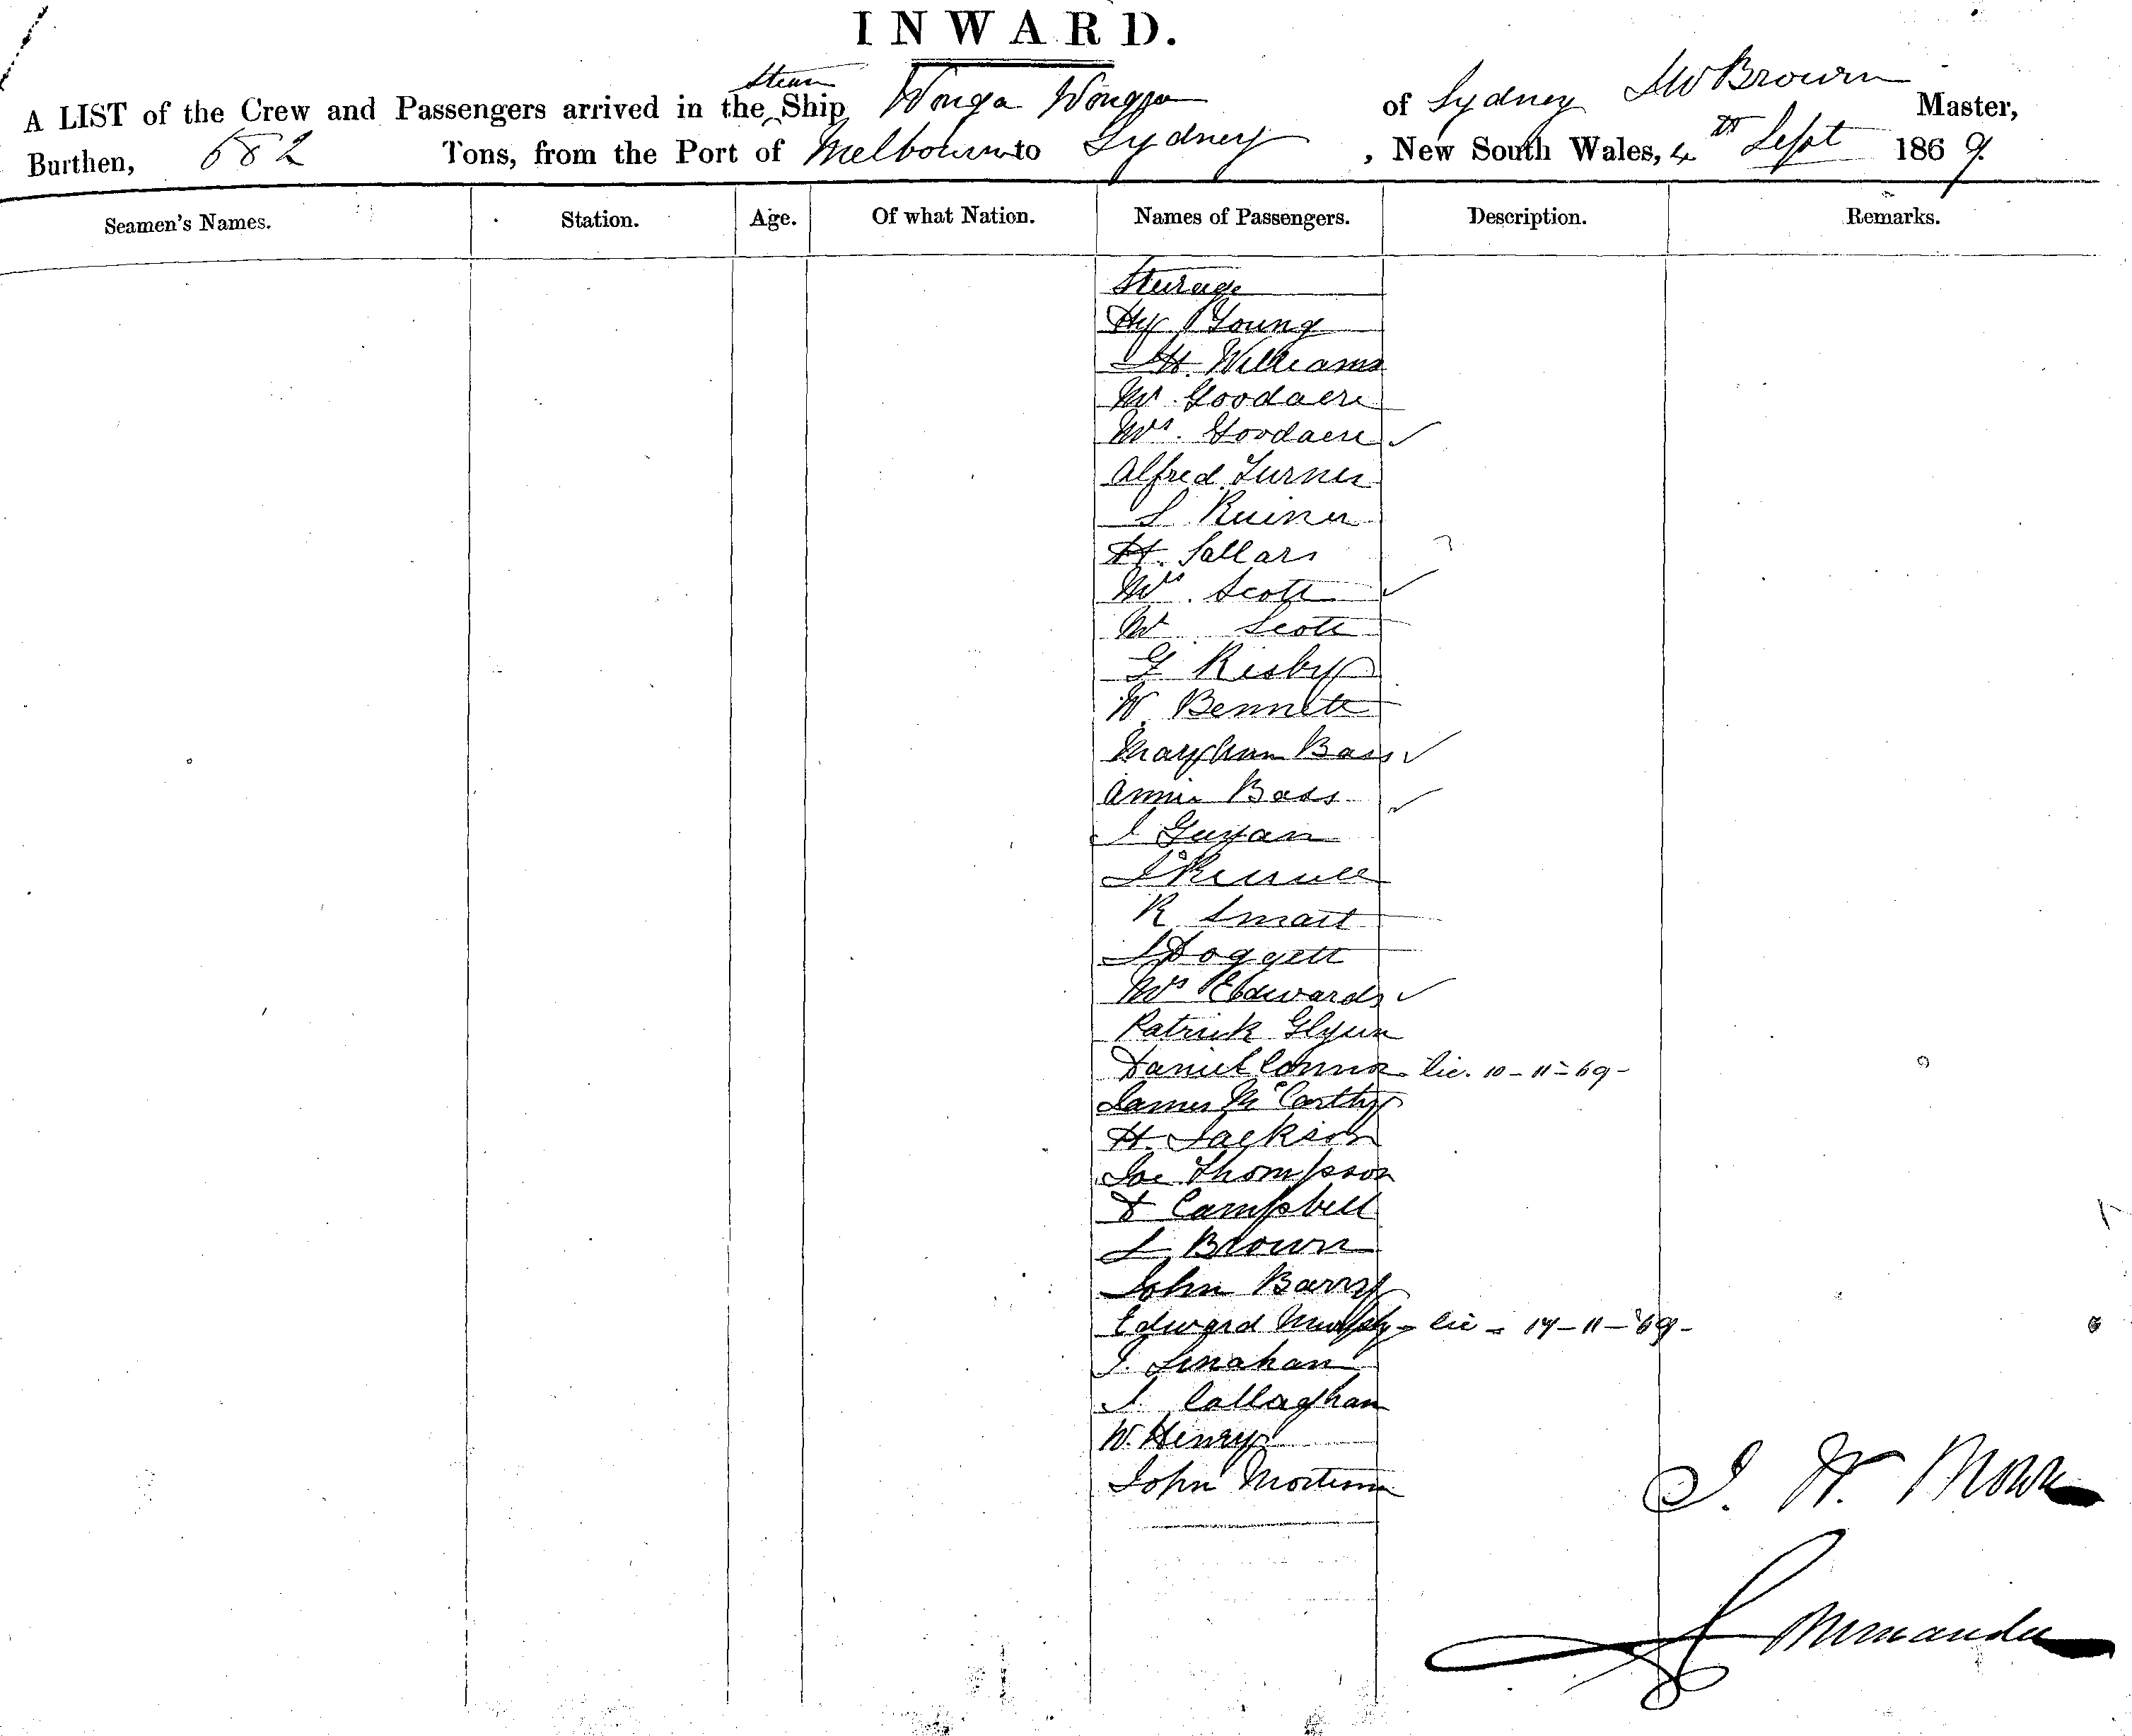 INWARD.
Steam
A LIST of the Crew and Passengers arrived in the Ship Wonga Wonga of Sydney JW Brown Master,
Burthen, 682 Tons, from the Port of Melbourne to Sydney, New South Wales, 4th Sept 1869.
Seamen's Names. Station. Age. Of what Nation. Names of Passengers. Description. Remarks.
Steerage
Hy Young
H. Williams
Mr. Goodacre
Mrs. Goodacre ✓
Alfred Turner
H. Sallars
Mrs. Scott ✓
Mr Scott
G Risby
W. Bennett
Mary Ann Bass ✓
Annie Bass ✓
J Guyan
R Smart
J Doggett
Mrs Edwards ✓
Patrick Glynn
Daniel Connor lic. 10-11-69-
James McCarthy
H. Jackson
Joe Thompson
D Campbell
J Brown
John Barry
Edward Murphy - lic - 14-11-69-
J. Linahan
J. Callaghan
W. Henry
John Mortimer
J. W. Brown
Commander